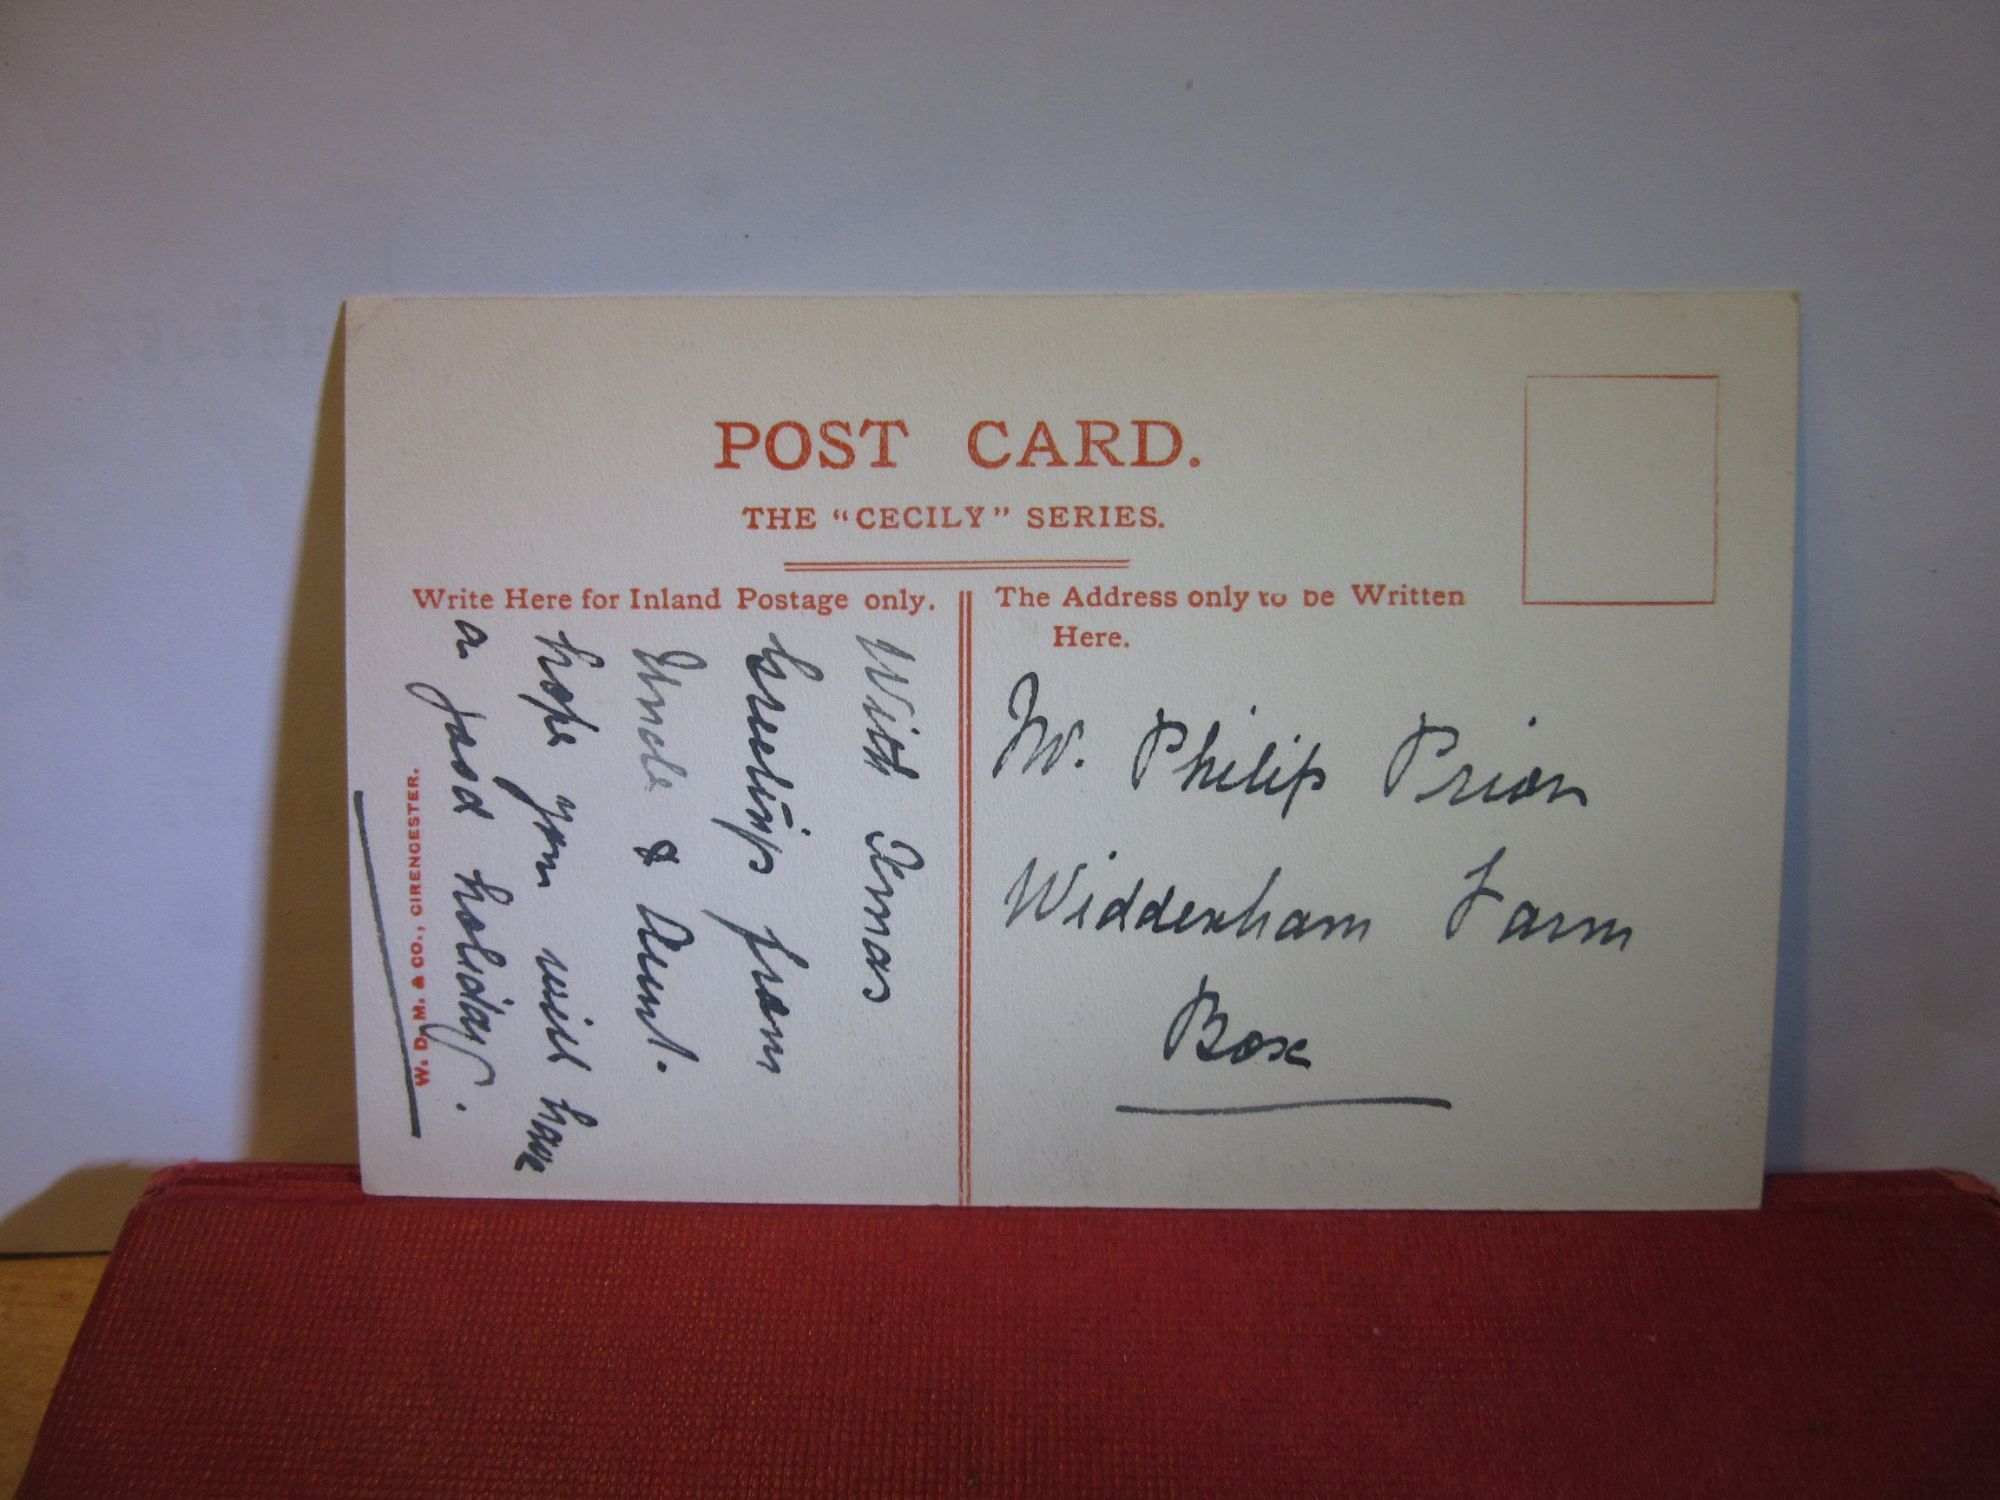 POST CARD.
THE “CECILY” SERIES.
Write Here for Inland Postage only.
The Address only to be Written
Here.
With Xmas
Greetings from
Uncle & Aunt.
hope you will have
a good holiday.
W. D. M. & CO., CIRENCESTER.
M. Philip Prior
Widdenham Farm
Box